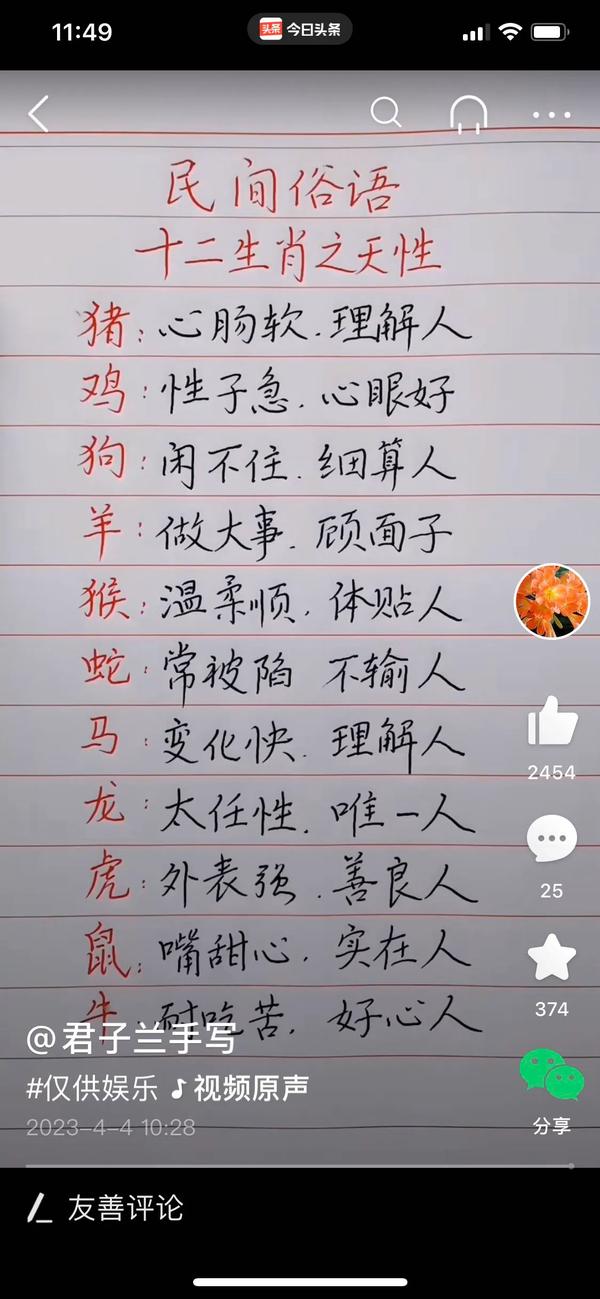 11:49
头条 今日头条
民间俗语
十二生肖之天性
猪:心肠软.理解人
鸡:性子急.心眼好
狗:闲不住.细算人
羊:做大事.顾面子
猴:温柔顺.体贴人
蛇:常被陷 不输人
马:变化快.理解人
龙:太任性.唯一人
虎:外表强.善良人
鼠:嘴甜心.实在人
牛:耐吃苦.好心人
2454
25
374
分享
@君子兰手写
#仅供娱乐 视频原声
2023-4-4 10:28
友善评论